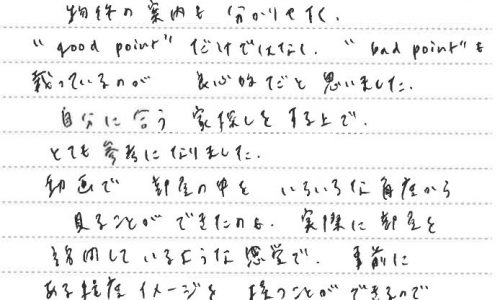 物件の案内も 分かりやすく、
“good point” だけではなく、“bad point”も
載っているのが 良心的だと 思いました。
自分に合う 家探しをする上で、
とても参考になりました。
動画で 部屋の中を いろいろな角度から
見ることができたのも、実際に部屋を
訪問しているような感覚で、事前に
ある程度イメージを 持つことができるので